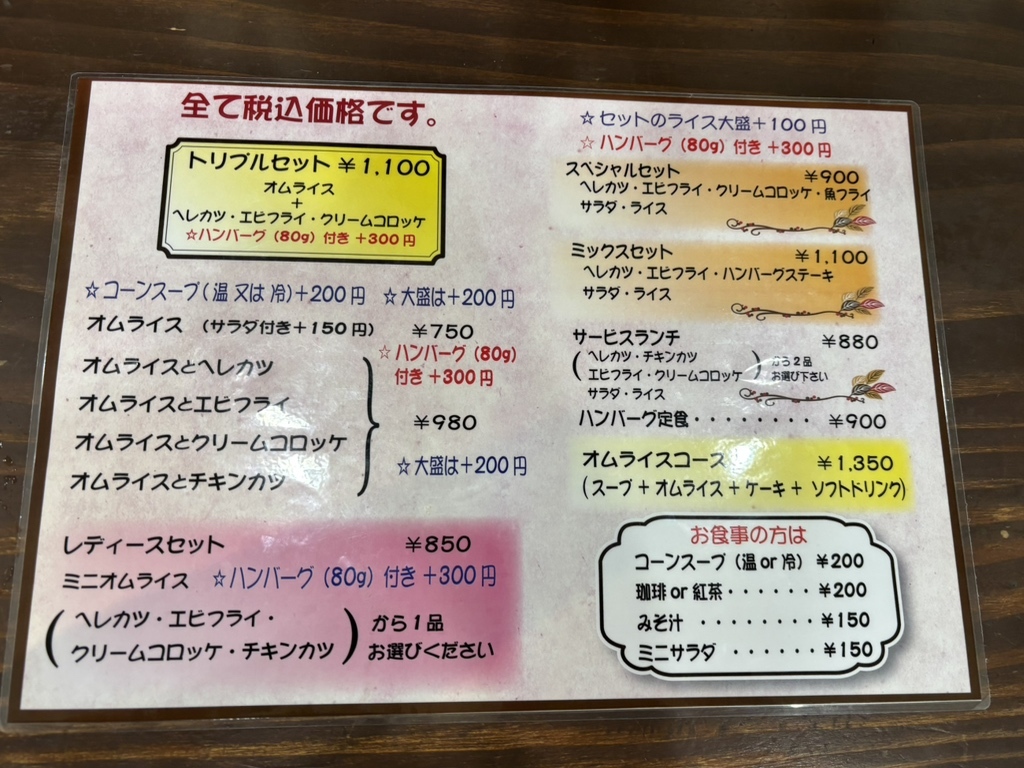 全て税込価格です。
トリプルセット ¥1,100
オムライス
+
ヘレカツ・エビフライ・クリームコロッケ
☆ハンバーグ (80g) 付き +300円
☆コーンスープ(温 又は 冷)+200円 ☆大盛は+200円
オムライス (サラダ付き+150円) ¥750
☆ハンバーグ (80g)
付き +300円
オムライスとヘレカツ
オムライスとエビフライ
オムライスとクリームコロッケ
オムライスとチキンカツ
¥980
☆大盛は+200円
レディースセット ¥850
ミニオムライス ☆ハンバーグ (80g) 付き +300円
(ヘレカツ・エビフライ・
クリームコロッケ・チキンカツ)
から1品
お選びください
☆セットのライス大盛+100円
☆ハンバーグ (80g) 付き +300円
スペシャルセット ¥900
ヘレカツ・エビフライ・クリームコロッケ・魚フライ
サラダ・ライス
ミックスセット ¥1,100
ヘレカツ・エビフライ・ハンバーグステーキ
サラダ・ライス
サービスランチ ¥880
(ヘレカツ・チキンカツ
エビフライ・クリームコロッケ)
から2品
お選び下さい
サラダ・ライス
ハンバーグ定食・・・・・・・・ ¥900
オムライスコース ¥1,350
(スープ+オムライス+ケーキ+ ソフトドリンク)
お食事の方は
コーンスープ (温 or 冷) ¥200
珈琲 or 紅茶・・・・・・ ¥200
みそ汁 ・・・・・・・・ ¥150
ミニサラダ ・・・・・・ ¥150